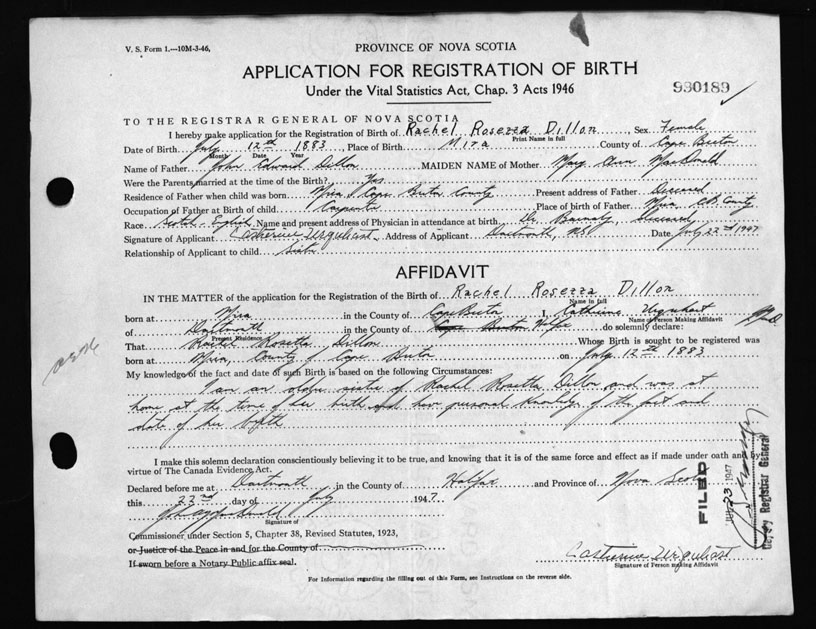 V. S. Form 1.—10M-3-46.
PROVINCE OF NOVA SCOTIA
APPLICATION FOR REGISTRATION OF BIRTH
Under the Vital Statistics Act, Chap. 3 Acts 1946
990189
TO THE REGISTRAR GENERAL OF NOVA SCOTIA
I hereby make application for the Registration of Birth of Rachel Rosezza Dillon, Sex Female
Print Name in full
Date of Birth July 12th 1883, Place of Birth Mira County of Cape Breton
Month Date Year
Name of Father John Edward Dillon MAIDEN NAME of Mother Mary Ann MacDonald
Were the Parents married at the time of Birth? Yes
Residence of Father when child was born Mira, Cape Breton County Present address of Father Deceased
Occupation of Father at Birth of child Carpenter Place of birth of Father Mira, C.B. County
Race Scotch-English Name and present address of Physician in attendance at birth Dr. Deceased
Signature of Applicant Catherine Urquhart Address of Applicant Dartmouth, N.S. Date July 22nd 1947
Relationship of Applicant to child Sister
AFFIDAVIT
IN THE MATTER of the application for the Registration of the Birth of Rachel Rosezza Dillon
Name in full
born at Mira in the County of Cape Breton I, Catherine Urquhart
Name of Person Making Affidavit
of Dartmouth in the County of Cape Breton Halifax do solemnly declare:
Present Residence
That Rachel Rosetta Dillon Whose Birth is sought to be registered was
born at Mira, County of Cape Breton on July 12th 1883
My knowledge of the fact and date of such Birth is based on the following Circumstances:
I am an older sister of Rachel Rosetta Dillon and was at
home at the time of her birth and have personal knowledge of the fact and
date of her birth
I make this solemn declaration conscientiously believing it to be true, and knowing that it is of the same force and effect as if made under oath and by
virtue of The Canada Evidence Act.
Declared before me at Dartmouth in the County of Halifax and Province of Nova Scotia
this 22nd day of July 1947.
Signature of
Commissioner under Section 5, Chapter 38, Revised Statutes, 1923,
or Justice of the Peace in and for the County of
If sworn before a Notary Public affix seal.
Catherine Urquhart
Signature of Person making Affidavit
For Information regarding the filling out of this Form, see Instructions on the reverse side.
FILED
23 1947
Deputy Registrar General